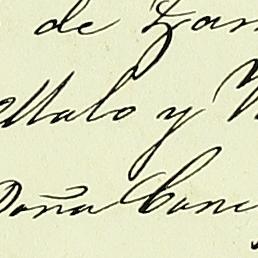 de Zam
Malo y V
Doña Conc